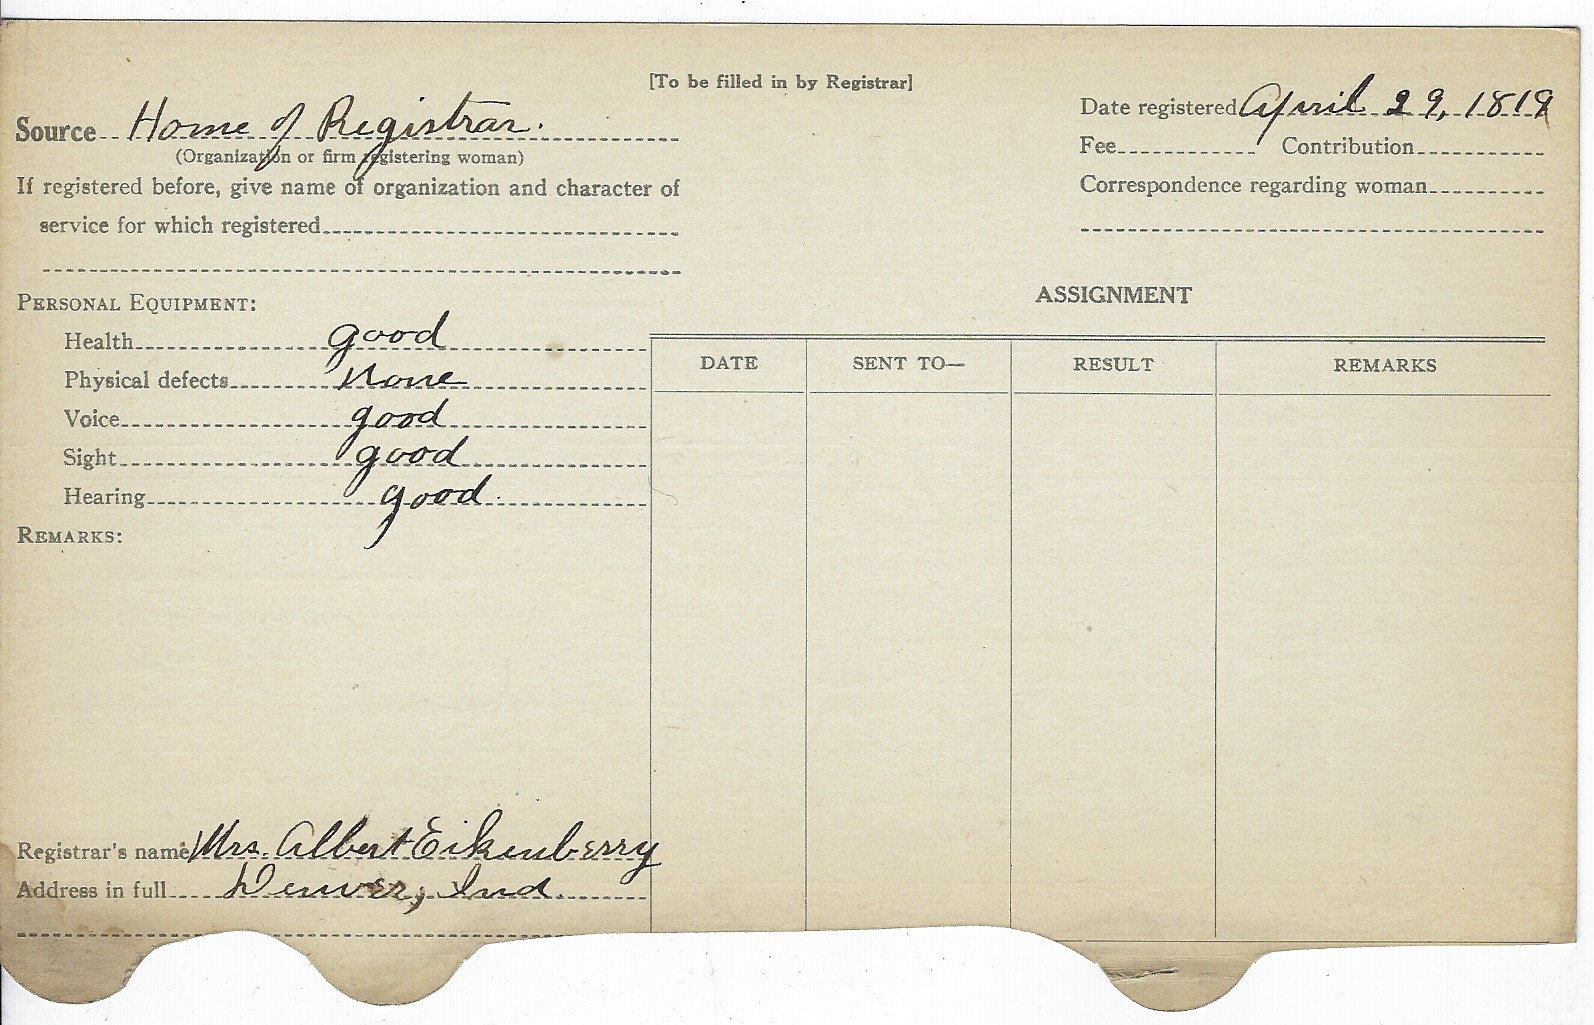 [To be filled in by Registrar]
Source Home of Registrar.
(Organization or firm registering woman)
If registered before, give name of organization and character of
service for which registered
Date registered April 29, 1819
Fee Contribution
Correspondence regarding woman
PERSONAL EQUIPMENT:
Health good
Physical defects None
Voice good
Sight good
Hearing good.
REMARKS:
ASSIGNMENT
DATE SENT TO— RESULT REMARKS
Registrar's name Mrs. Albert Eikenberry
Address in full Denver, Ind.